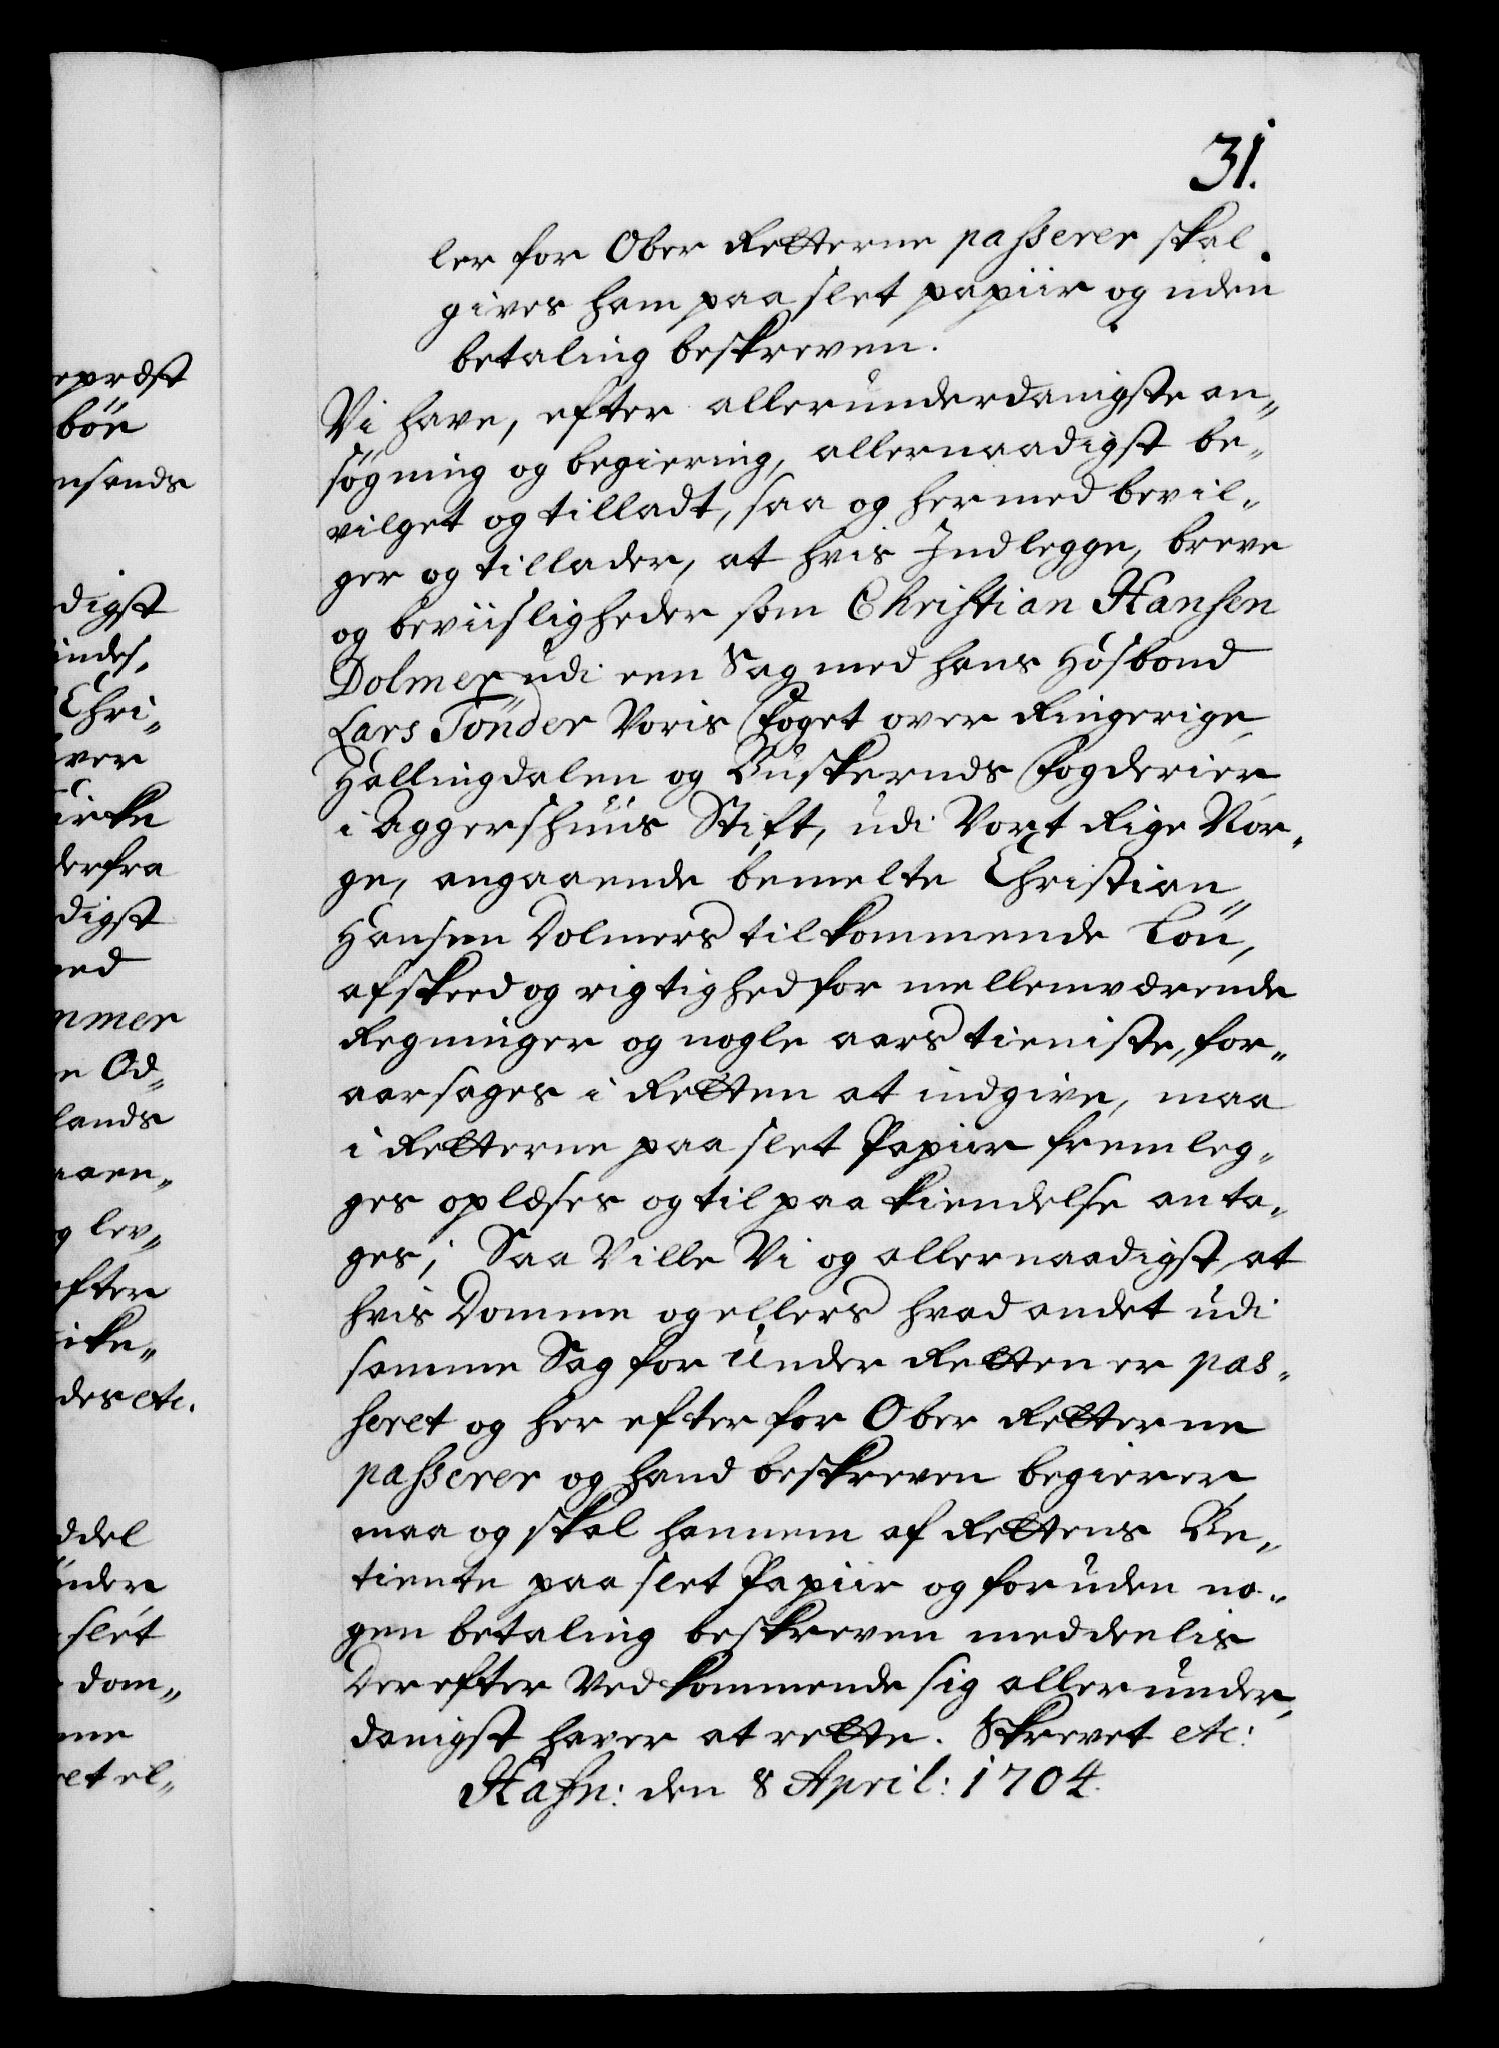 31.
ler for Ober Retterne passerer skal
gives ham paa slet papiir og uden
betaling beskreven.
Vi have, efter allerunderdanigste an„
søgning og begiering, allernaadigst be„
vilget og tilladt, saa og hermed bevil„
ger og tillader, at hvis Indlegge, breve
og beviisligheder som Christian Hansen
Dolmer udi een Sag med hans Hosbond
Lars Tönder Voris Foget over Ringerige,
Hallingdalen og Buskeruds Fogderier
i Aggershuus Stift, udi Vort Rige Nor„
ge, angaaende bemelte Christian
Hansen Dolmers tilkommende Lön,
afskeed og rigtighed for mellemværende
Regninger og nogle aars tieniste, for„
aarsages i Retten at indgive, maa
i Retterne paa slet Papiir fremleg„
ges oplæses og til paakiendelse anta„
ges; Saa Ville Vi og allernaadigst, at
hvis Domme og ellers hvad andet udi
samme Sag for Under Retten er pas„
seret og her efter for Ober Retterne
passerer og hand beskreven begierer,
maa og skal hannem af Rettens Be„
tiente paa slet Papiir og foruden no„
gen betaling beskreven meddeelis
Derefter Vedkommende sig allerunder„
danigst haver at rette. Skrevet etc:
Hafn: den 8 April: 1704.
epræst
bör
nsands
digst
indes,
Chri„
ver
irke
derfra
digst
ed
mmer
e Od„
lands
aaen„
g lev„
fter
ike„
des etc.
ddel
nder
slet
dom„
me
et el„